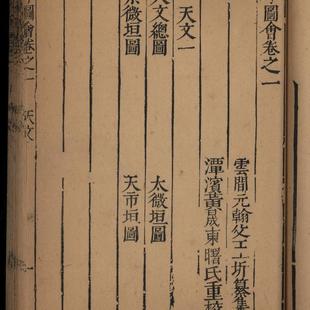 圖會卷之一
雲間元翰父王圻纂集
潭濱黃晟東曙氏重校
天文一
天文總圖 太微垣圖
紫微垣圖 天市垣圖
圖會卷之一 天文 一